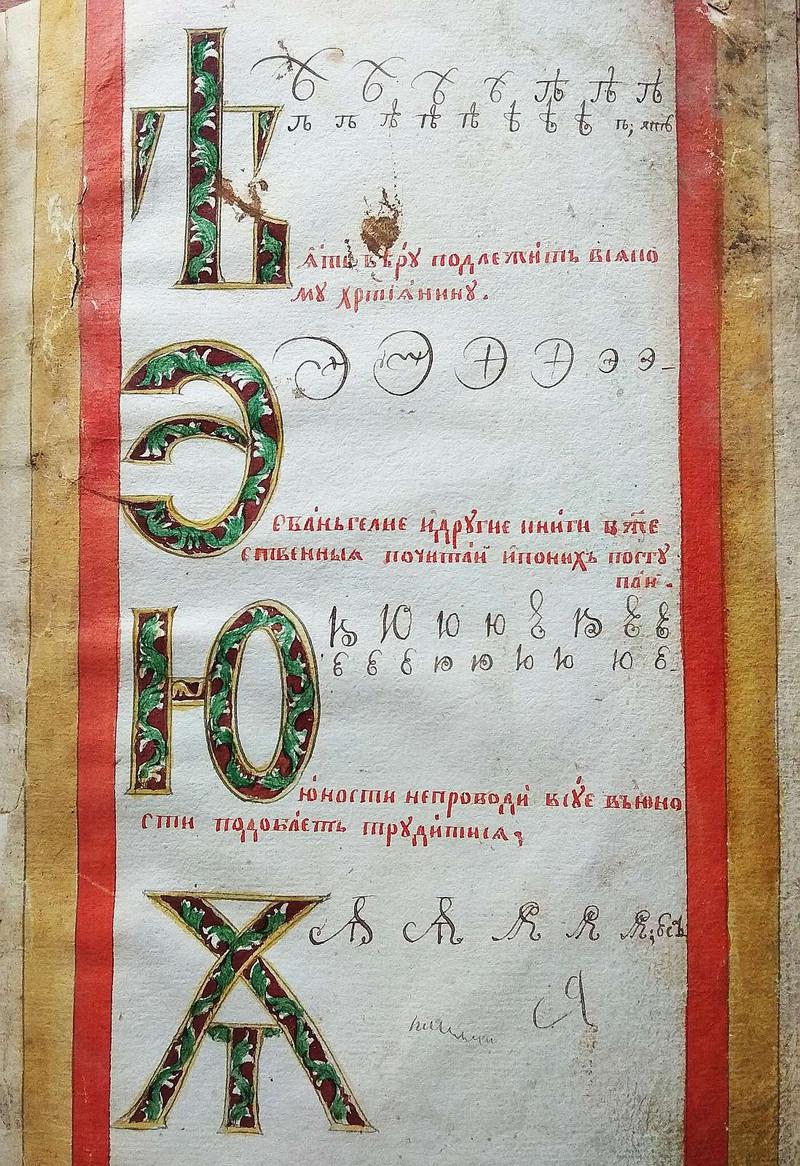 Ѣ
ѣ ѣ ѣ ѣ ѣ ѣ ѣ
ѣ ѣ ѣ ѣ ѣ ѣ ѣ ѣ ѣ; ять
Я҆ть вѣ́рꙋ подлежи́тъ всѧко
мꙋ хрⷭ҇тїѧ́нинꙋ.
Э
Э Э Э Э э э
Єѵа́нъгелие и҆дрꙋ́гие книги бж҃е
ственныѧ почита́й и҆пони́хъ постꙋ
па́й.
Ю
ю Ю ю ю ю ю ю ю
ю ю ю ю ю ю ю ю ю
ю҆́ности непроводи́ всꙋ́е въюно
сти подоба́етъ трꙋди́тисѧ;
Ѫ
Ѧ Ѧ Ѧ Ѧ Ѧ;
Я